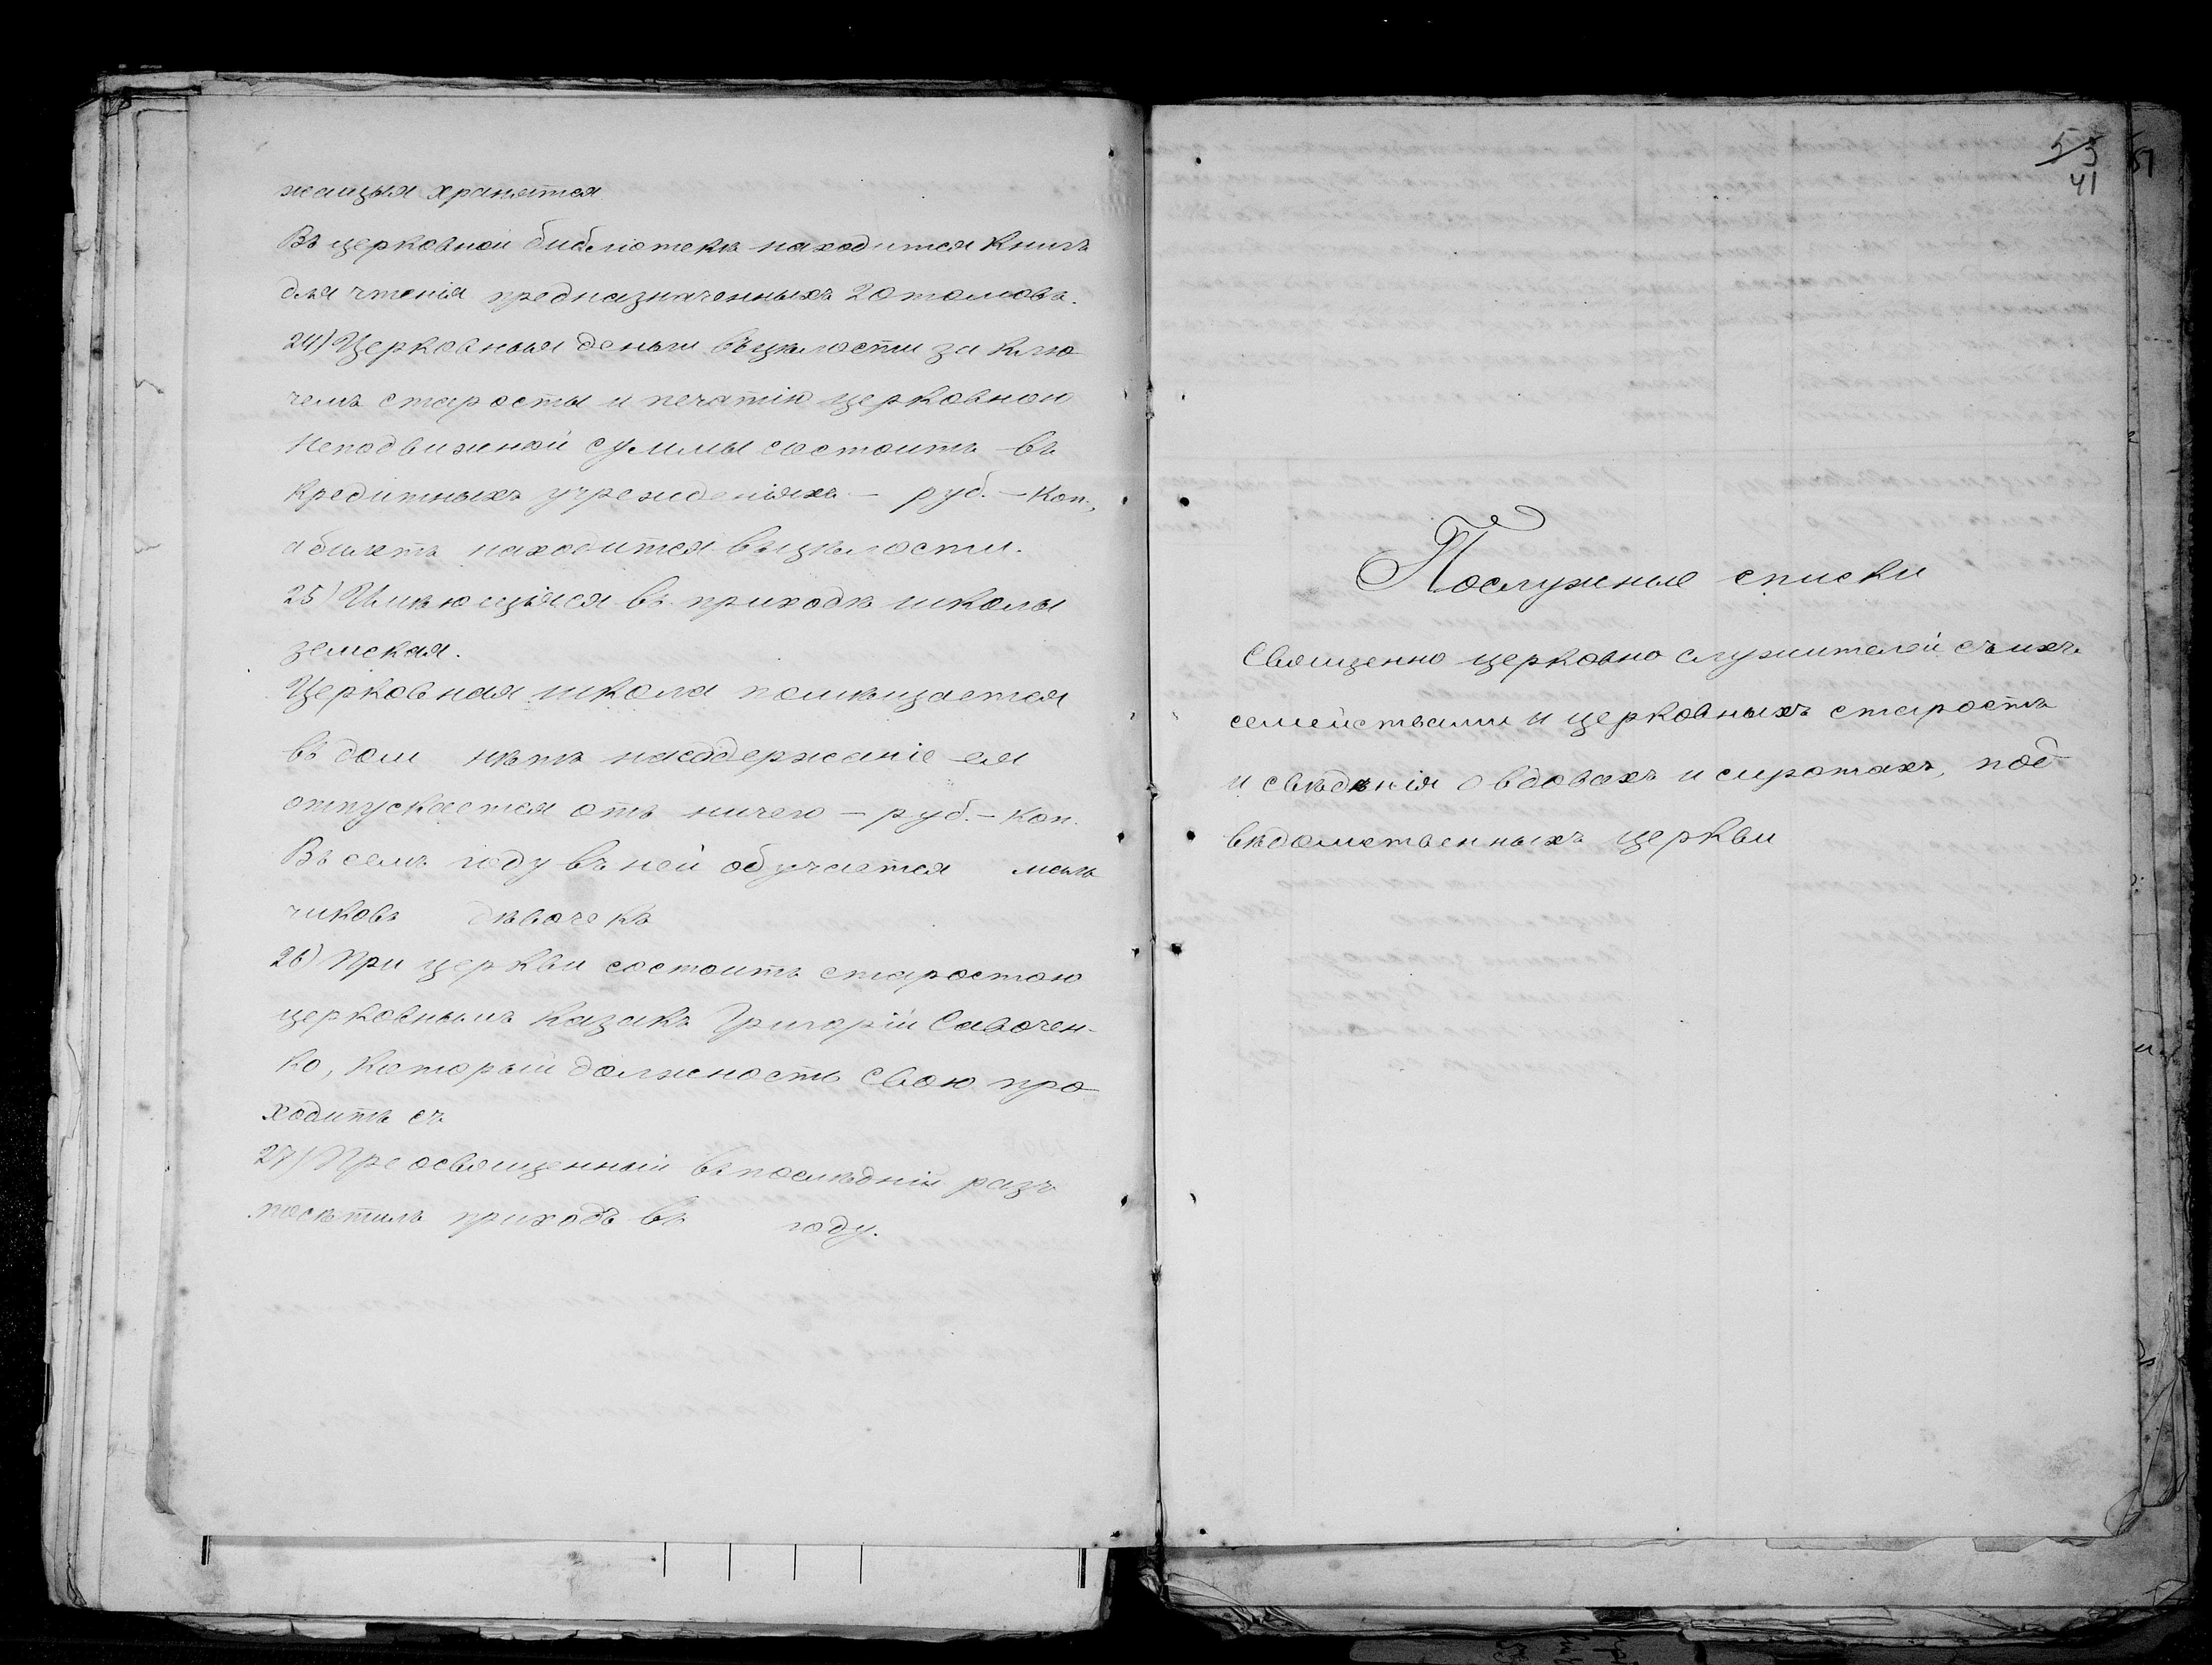 жащыя хранятся.
Въ церковной библіотекѣ находится книгъ
для чтенія предназначенныхъ 20 томовъ.
24) Церковныя деньги въ цѣлости за клю
чемъ старосты и печатію церковной
Неподвижной суммы состоитъ въ
кредитныхъ учрежденіяхъ – руб. – коп.,
а билетъ находится въ цѣлости.
25) Имѣющіяся въ приходѣ школы
земская.
Церковная школа помѣщается
въ дом нѣтъ на содержаніе ея
отпускается отъ ничего – руб. – коп.
Въ семъ году въ ней обучается маль
чиковъ дѣвочекъ
26) При церкви состоитъ старостою
церковнымъ казакъ Григорій Савочен-
ко, который должность свою про
ходитъ съ
27) Преосвященный въ послѣдній разъ
посѣтилъ приходъ въ году.
53
41
Послужные списки
Священно церковно служителей съ ихъ
семействами и церковныхъ старостъ
и свѣдѣнія о вдовахъ и сиротахъ, под
вѣдомственныхъ церкви